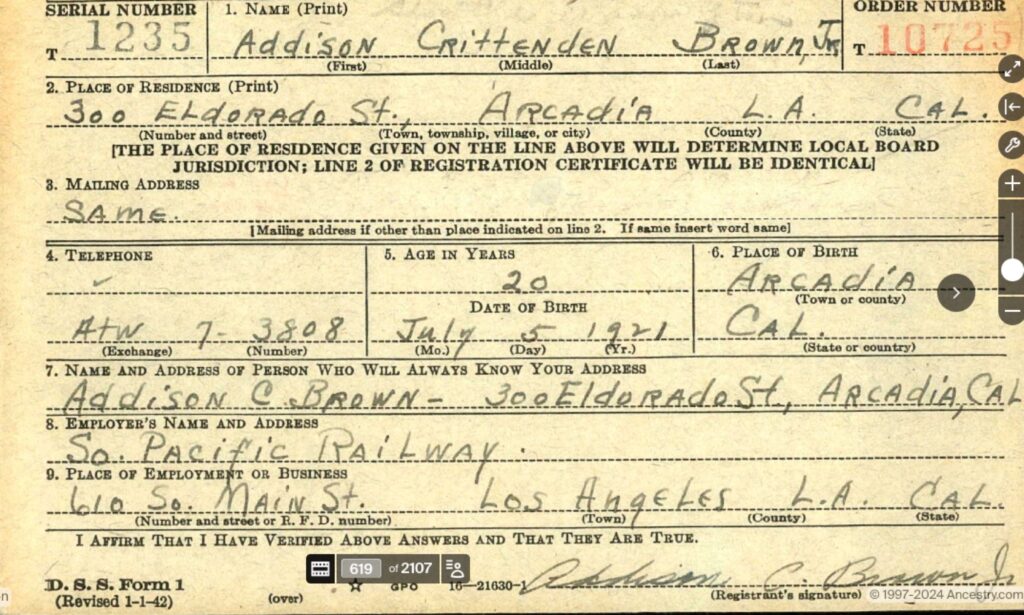 SERIAL NUMBER 1. NAME (Print) ORDER NUMBER
T 1235 Addison Crittenden Brown, Jr. T 10725
(First) (Middle) (Last)
2. PLACE OF RESIDENCE (Print)
300 Eldorado St., Arcadia L.A. Cal.
(Number and street) (Town, township, village, or city) (County) (State)
[THE PLACE OF RESIDENCE GIVEN ON THE LINE ABOVE WILL DETERMINE LOCAL BOARD
JURISDICTION; LINE 2 OF REGISTRATION CERTIFICATE WILL BE IDENTICAL]
3. MAILING ADDRESS
Same.
[Mailing address if other than place indicated on line 2. If same insert word same]
4. TELEPHONE 5. AGE IN YEARS 6. PLACE OF BIRTH
20 Arcadia
DATE OF BIRTH (Town or county)
Atw 7-3808 July 5 1921 Cal.
(Exchange) (Number) (Mo.) (Day) (Yr.) (State or country)
7. NAME AND ADDRESS OF PERSON WHO WILL ALWAYS KNOW YOUR ADDRESS
Addison C Brown - 300 Eldorado St., Arcadia, Cal
8. EMPLOYER'S NAME AND ADDRESS
So. Pacific Railway.
9. PLACE OF EMPLOYMENT OR BUSINESS
610 So. Main St. Los Angeles L.A. Cal.
(Number and street or R. F. D. number) (Town) (County) (State)
I AFFIRM THAT I HAVE VERIFIED ABOVE ANSWERS AND THAT THEY ARE TRUE.
619 of 2107
D. S. S. Form 1 GPO 16—21630-1 Addison C. Brown Jr
(Revised 1-1-42) (over) (Registrant's signature) © 1997-2024 Ancestry.com